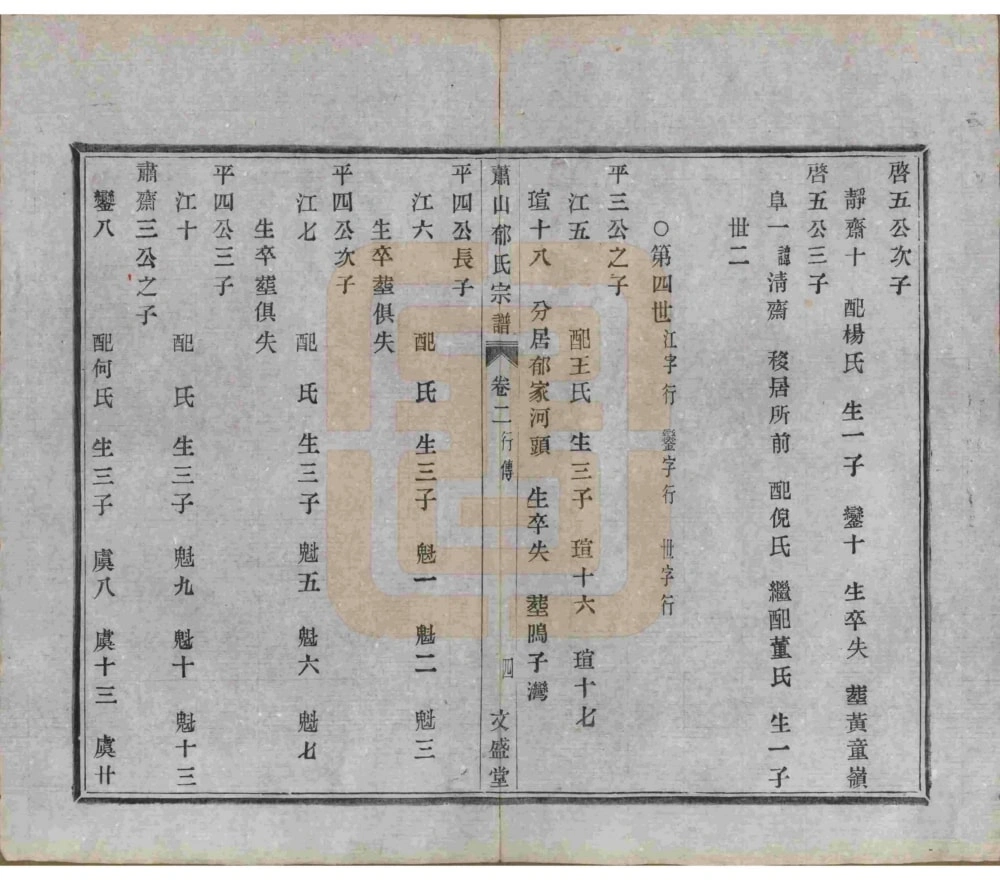 啓五公次子
靜齋十　配楊氏　生一子　鑾十　生卒失　塟黃童嶺
啓五公三子
阜一　諱淸齋　移居所前　配倪氏　繼配董氏　生一子
丗二
○第四世　江字行　鑾字行　丗字行
平三公之子
江五　配王氏　生三子　瑄十六　瑄十七
瑄十八　分居郁家河頭　生卒失　塟鴫子灣
蕭山郁氏宗譜　卷二　行傳　四　文盛堂
平四公長子
江六　配　氏　生三子　魁一　魁二　魁三
生卒塟俱失
平四公次子
江七　配　氏　生三子　魁五　魁六　魁七
生卒塟俱失
平四公三子
江十　配　氏　生三子　魁九　魁十　魁十三
肅齋三公之子
鑾八　配何氏　生三子　虞八　虞十三　虞廿